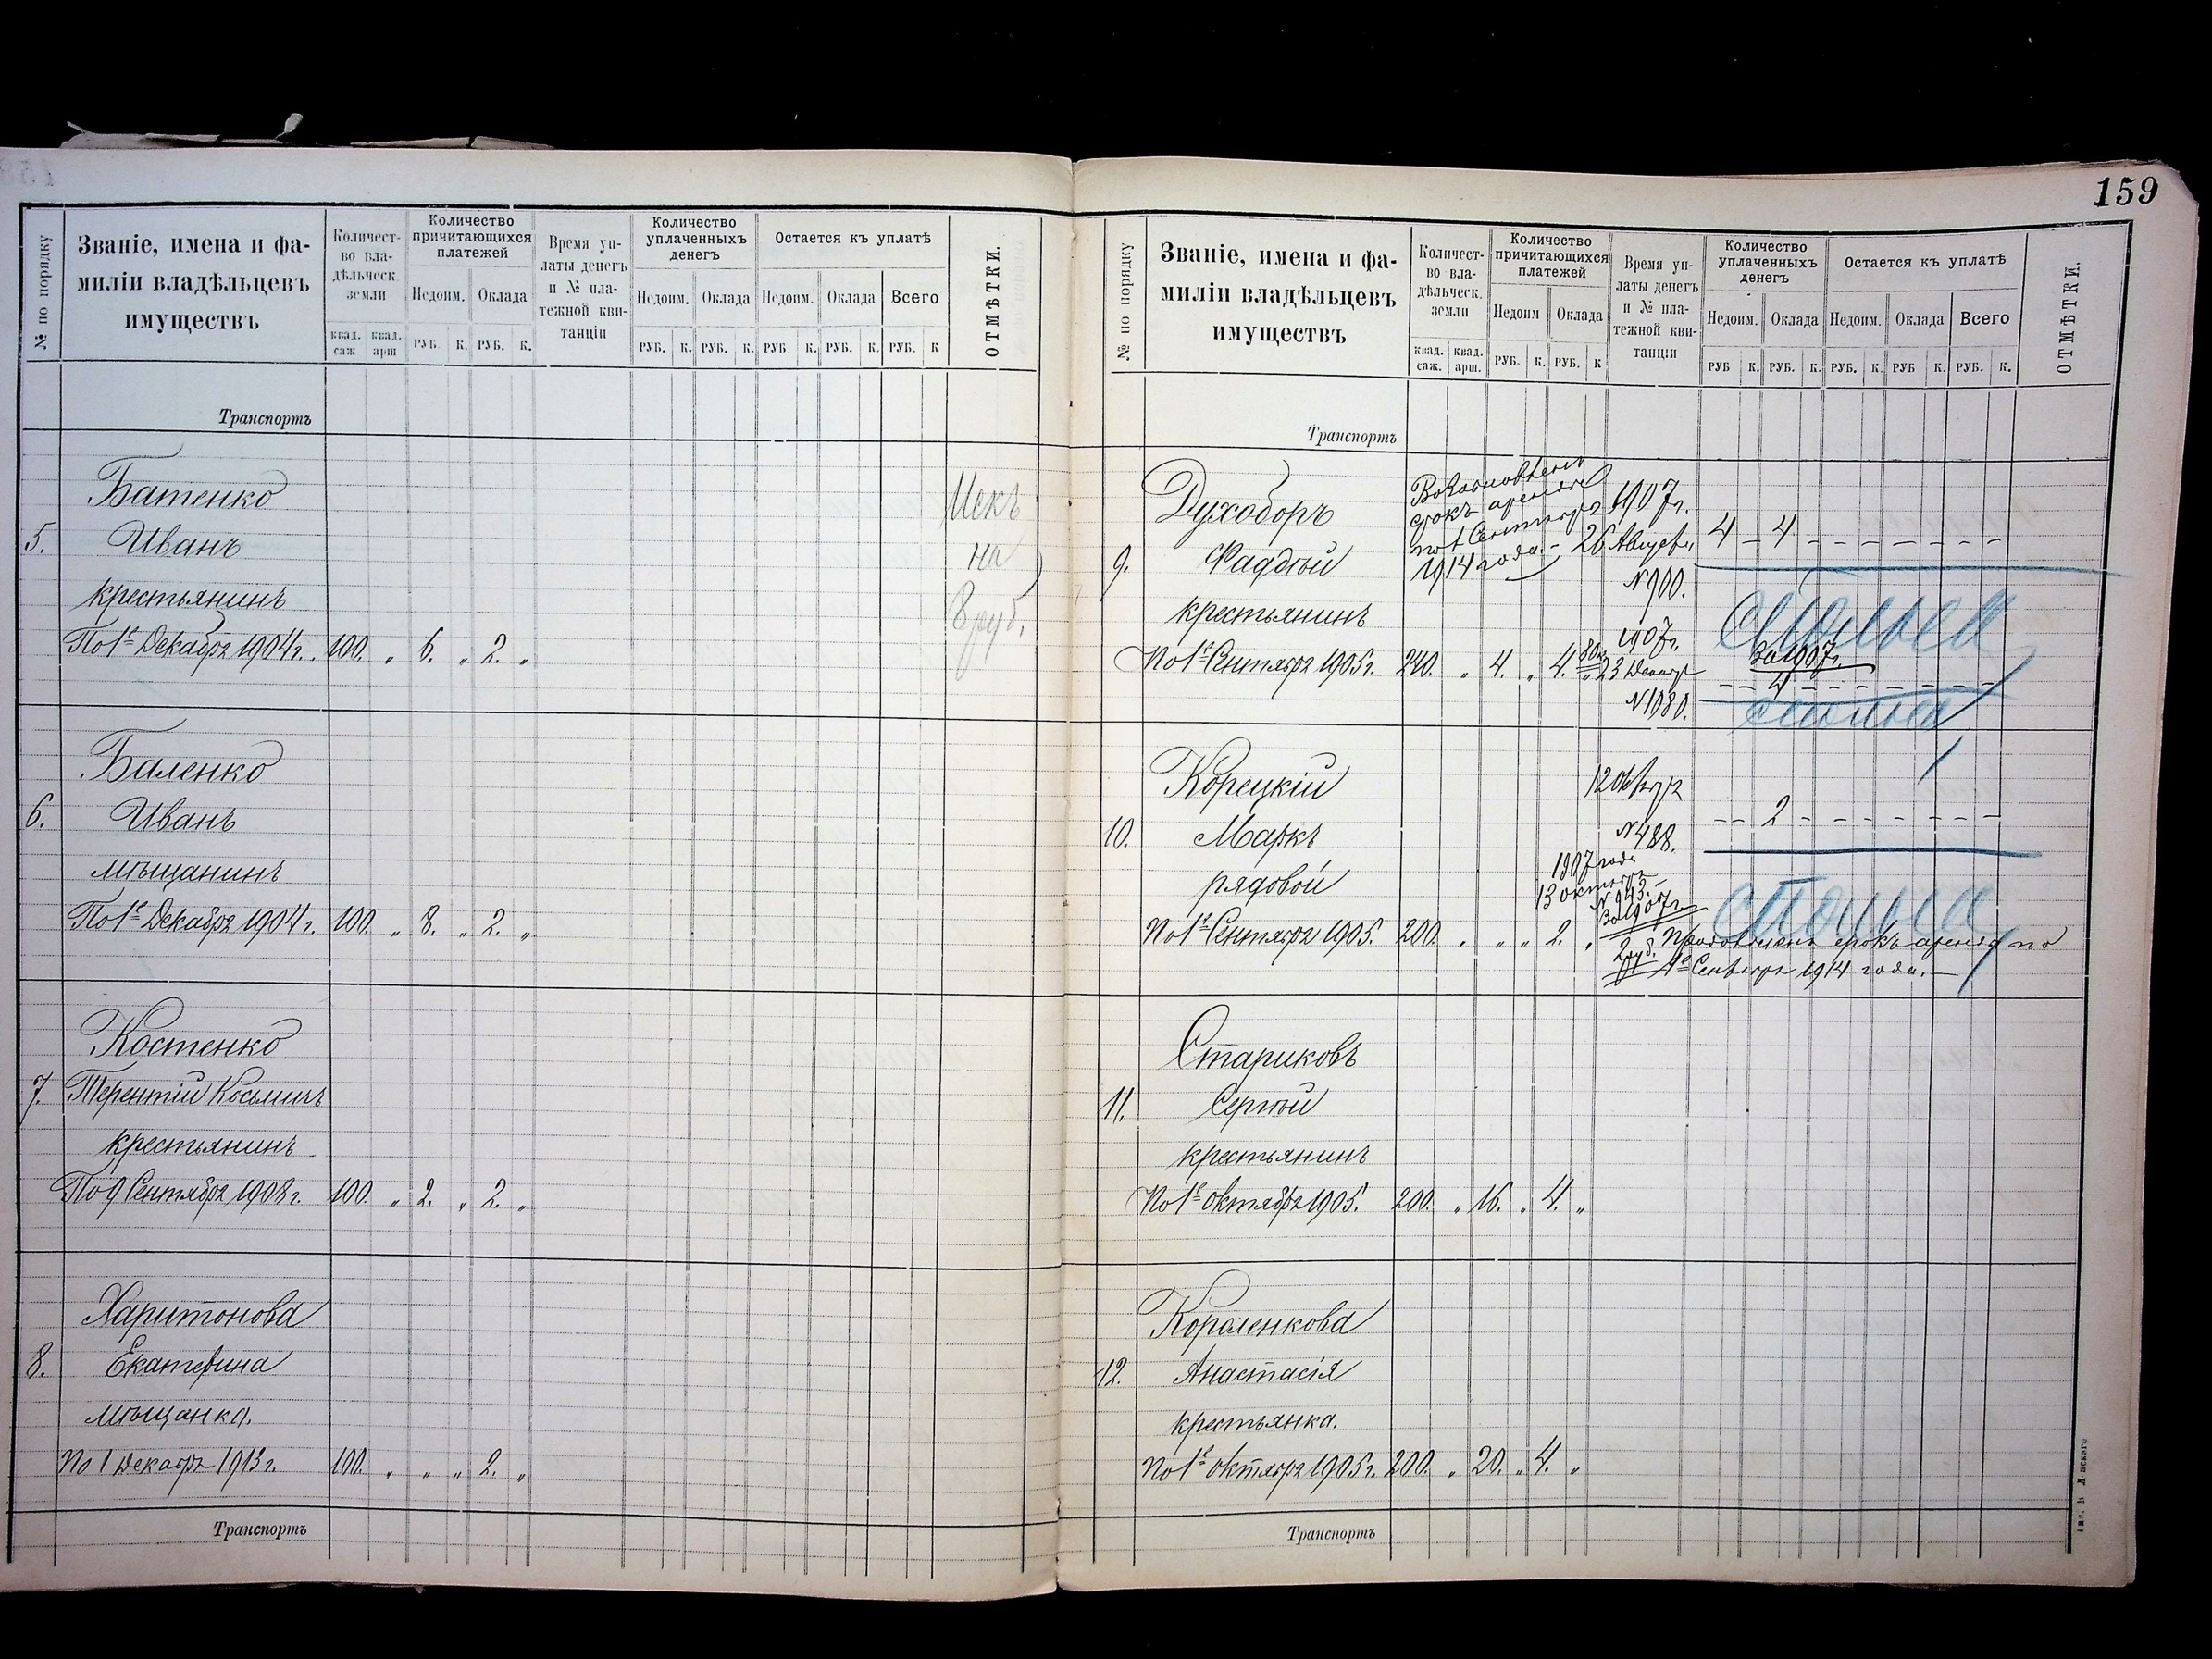 159
№ по порядку
Званіе, имена и фа-
миліи владѣльцевъ
имуществъ
Количест-
во вла-
дѣльческ.
земли
квад. саж. квад. арш.
Количество
причитающихся
платежей
Недоим. Оклада
РУБ. К. РУБ. К.
Время уп-
латы денегъ
и № пла-
тежной кви-
танціи
Количество
уплаченныхъ
денегъ
Недоим. Оклада
РУБ. К. РУБ. К.
Остается къ уплатѣ
Недоим. Оклада Всего
РУБ. К. РУБ. К. РУБ. К
ОТМѢТКИ.
Транспортъ
Батенко
5. Иванъ
крестьянинъ
По 1е Декабря 1904 г. 100. „ 6. „ 2. „
Искъ
на
8 руб.
Баленко
6. Иванъ
мѣщанинъ
По 1е Декабря 1904 г. 100. „ 8. „ 2. „
Костенко
7. Терентій Косьминъ
крестьянинъ
По 9 Сентября 1908 г. 100. „ 2. „ 2. „
Харитонова
8. Екатерина
мѣщанка.
По 1 Декабр 1913 г. 100. „ „ „ 2. „
Транспортъ
№ по порядку
Званіе, имена и фа-
миліи владѣльцевъ
имуществъ
Количест-
во вла-
дѣльческ.
земли
квад. саж. квад. арш.
Количество
причитающихся
платежей
Недоим Оклада
РУБ. К. РУБ. К
Время уп-
латы денегъ
и № пла-
тежной кви-
танціи
Количество
уплаченныхъ
денегъ
Недоим. Оклада
РУБ К. РУБ. К.
Остается къ уплатѣ
Недоим. Оклада Всего
РУБ. К. РУБ К. РУБ. К.
ОТМѢТКИ.
Транспортъ
Духоборъ
9. Фаддѣй
крестьянинъ
По 1е Сентября 1905 г. 240. „ 4. „ 4. 80к.
срокъ аренды
по 1 Сентября
1914 года.
1907 г.
26 Августа 4 – 4 – – – – – – –
№ 900.
1907 г.
23 Декабр
№ 1080.
За 1907 г.
– – 4 – – – – – – –
Корецкій
10. Маркъ
рядовой
По 1е Сентября 1905. 200. „ „ „ 2. „
№ 488.
– – 2 – – – – – – –
1907 года
13 октября
№ 943.
За 1907 г.
2 руб.
срокъ аренды по
1е Сентября 1914 года.
Стариковъ
11. Сергѣй
крестьянинъ
По 1е октября 1905. 200. „ 16. „ 4. „
Короленкова
12. Анастасія
крестьянка.
По 1е октября 1905 г. 200. „ 20. „ 4. „
Транспортъ